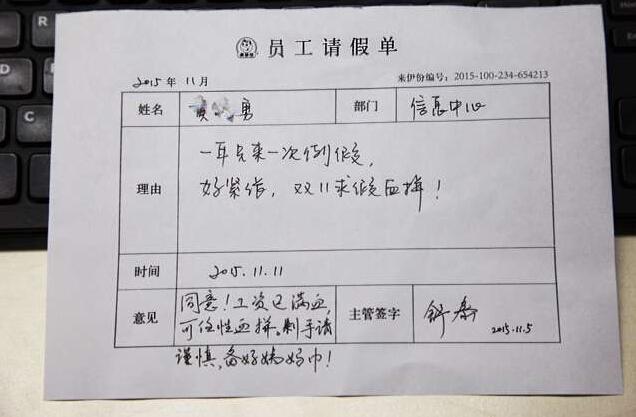 员工请假单
2015年11月 来伊份编号：2015-100-234-654213
姓名 黄 勇 部门 信息中心
一年只来一次例假,
理由
好紧信, 双11求假血拼!
时间 2015.11.11
同意!工资已满血,
意见 可任性血拼。剁手请 主管签字 舒春
2015.11.5
谨慎,备好姨妈巾!